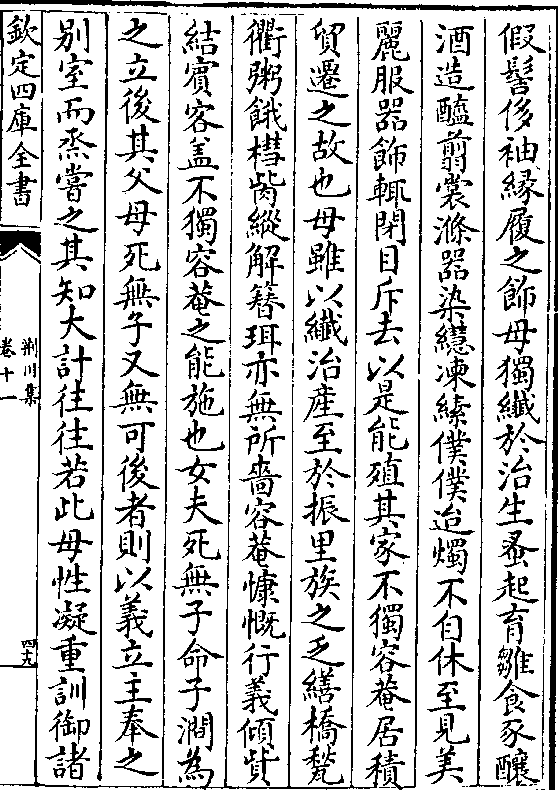 假髻侈袖縁履之飾母獨纎於治生蚤起育雛食豕釀
酒造醯翦裳滌器染繐湅縤僕僕迨燭不自休至見美
麗服器飾輙閉目斥去以是能殖其家不獨容菴居積
貿遷之故也母雖以纎治産至於振里族之乏繕橋甃
衢粥餓槥胔縱解簪珥亦無所嗇容菴慷慨行義傾貲
結賓客盖不獨容菴之能施也女夫死無子命子澗為
之立後其父母死無子又無可後者則以義立主奉之
别室而烝嘗之其知大計往往若此母性凝重訓御諸
欽定四庫全書
荆川集
卷十一
四九